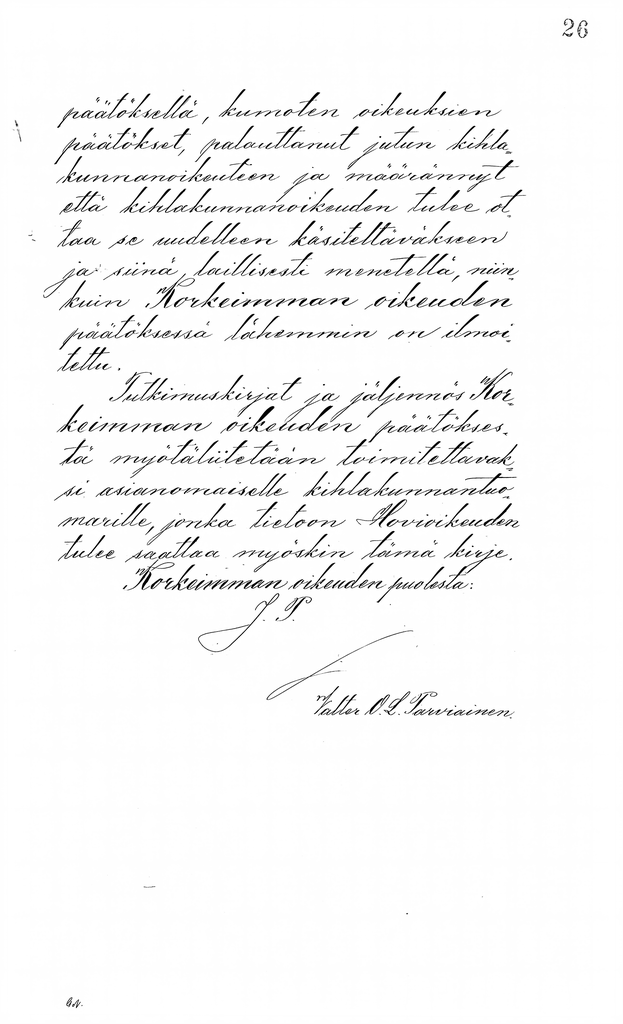 26
päätöksellä, kumoten oikeuksien
päätökset, palauttanut jutun kihla-
kunnanoikeuteen ja määrännyt
että kihlakunnanoikeuden tulee ot-
taa se uudelleen käsiteltäväkseen
ja siinä laillisesti menetellä, niin-
kuin Korkeimman oikeuden
päätöksessä lähemmin on ilmoi-
tettu.
Tutkimuskirjat ja jäljennös Kor-
keimman oikeuden päätökses-
tä myötäliitetään toimitettavak-
si asianomaiselle kihlakunnantuo-
marille, jonka tietoon Hovioikeuden
tulee saattaa myöskin tämä kirje.
Korkeimman oikeuden puolesta:
J. P.
Valter O. L. Parviainen.
G.N.